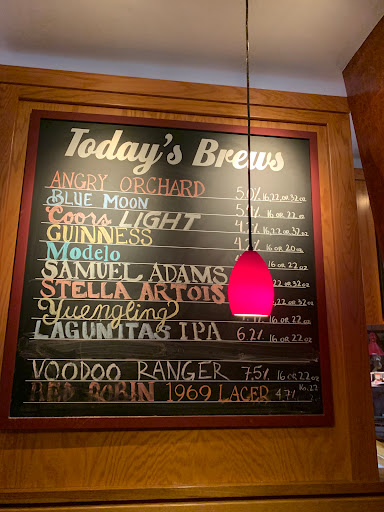 Today's Brews
ANGRY ORCHARD 5.0% 16, 22, OR 32 oz
BLUE MOON
Coors LIGHT 16 OR 22 oz
GUINNESS 16 OR 20 oz
Modelo 16 OR 22 oz
SAMUEL ADAMS
STELLA ARTOIS
Yuengling 16 OR 22 oz
LAGUNITAS IPA 6.2% 16 OR 22 oz
VOODOO RANGER 7.5% 16 OR 22 oz
RED ROBIN 1969 LAGER 4.7% 16, 22 oz